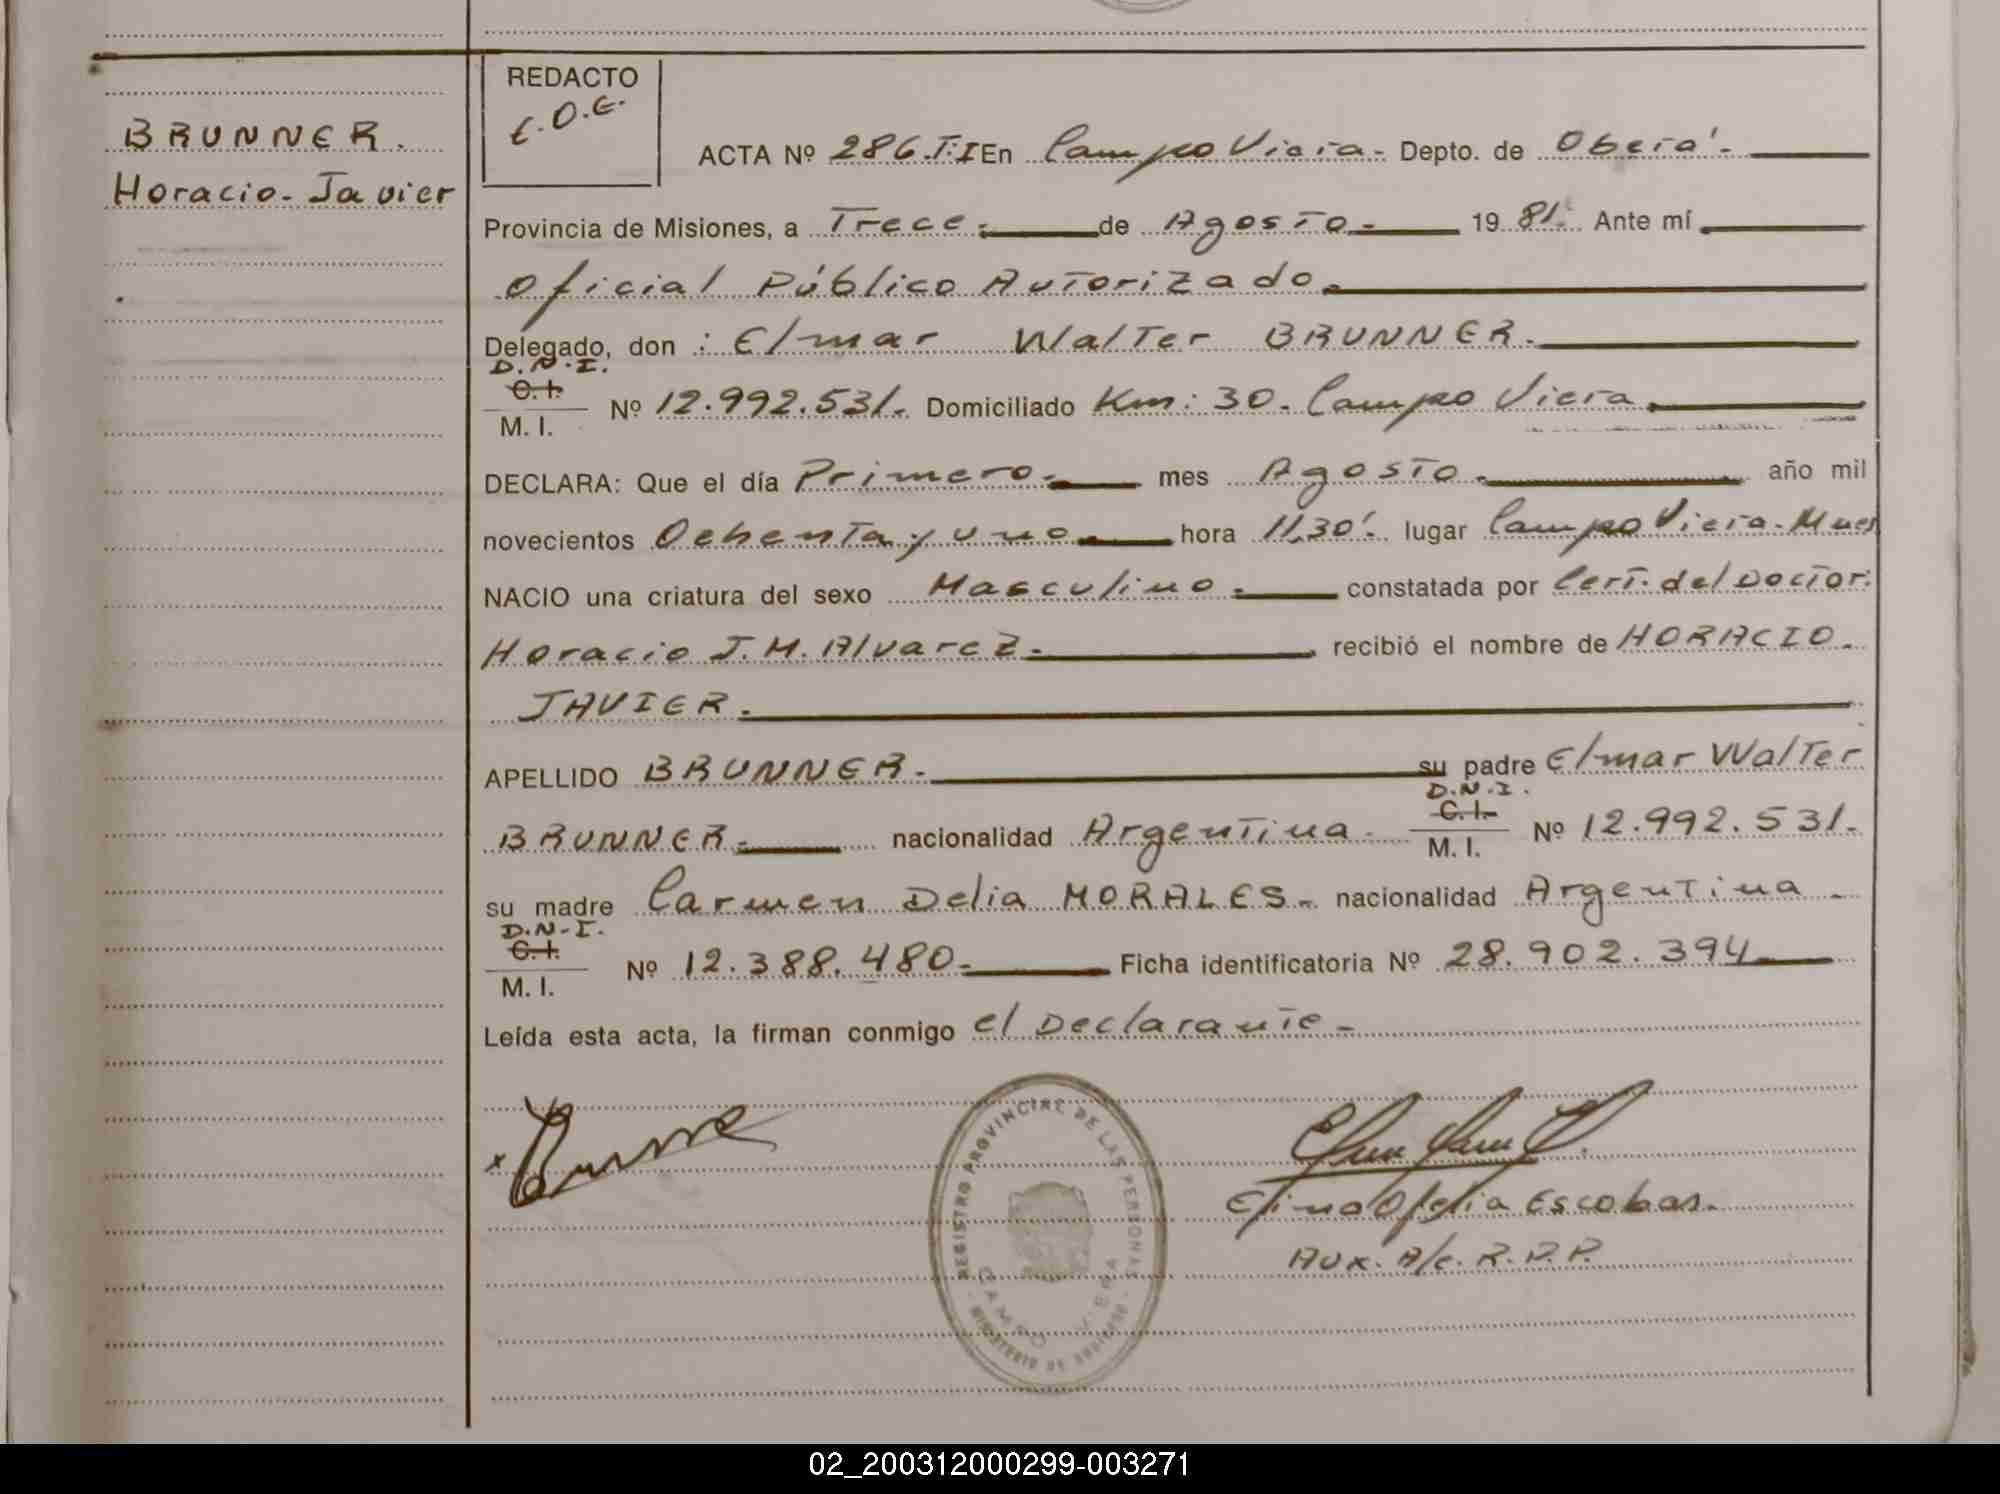 BRUNNER.
Horacio-Javier
REDACTO
E.O.E.
ACTA Nº 286.T.I En Campo Viera- Depto. de Oberá-
Provincia de Misiones, a Trece- de Agosto- 1981. Ante mí
Oficial Público Autorizado.
Delegado, don : Elmar Walter BRUNNER.
D.N.I.
C.I.
M. I. Nº 12.992.531. Domiciliado Km: 30- Campo Viera
DECLARA: Que el día Primero- mes Agosto- año mil
novecientos Ochenta y uno- hora 11,30'. lugar Campo Viera-Mnes
NACIO una criatura del sexo Masculino- constatada por Cert. del Doctor:
Horacio J.M. Alvarez- recibió el nombre de HORACIO-
JAVIER.
APELLIDO BRUNNER- su padre Elmar Walter
D.N.I.
C.I.
BRUNNER- nacionalidad Argentina- M. I. Nº 12.992.531-
su madre Carmen Delia MORALES- nacionalidad Argentina-
D.N-I.
C.I.
M. I. Nº 12.388.480- Ficha identificatoria Nº 28.902.394
Leída esta acta, la firman conmigo el Declarante-
REGISTRO PROVINCIAL DE LAS PERSONAS
CAMPO VIERA
MINISTERIO DE GOBIERNO
Ofelia Escobar.
Aux. A/c. R.P.P.
02_200312000299-003271